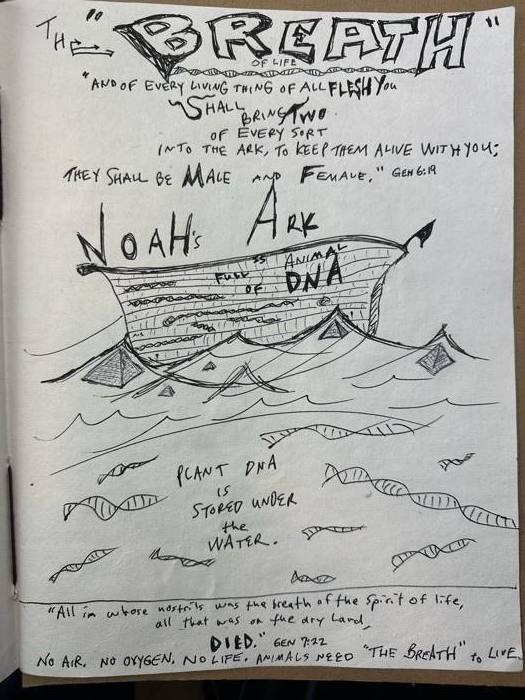 THE "BREATH"
OF LIFE
"AND OF EVERY LIVING THING OF ALL FLESH YOU
SHALL BRING TWO
OF EVERY SORT
INTO THE ARK, TO KEEP THEM ALIVE WITH YOU;
THEY SHALL BE MALE AND FEMALE." GEN 6:19
NOAH's ARK
IS
FULL OF ANIMAL
DNA
PLANT DNA
IS
STORED UNDER
the
WATER.
"All in whose nostrils was the breath of the spirit of life,
all that was on the dry land,
DIED." GEN 7:22
NO AIR. NO OXYGEN. NO LIFE. ANIMALS NEED "THE BREATH" to LIVE.